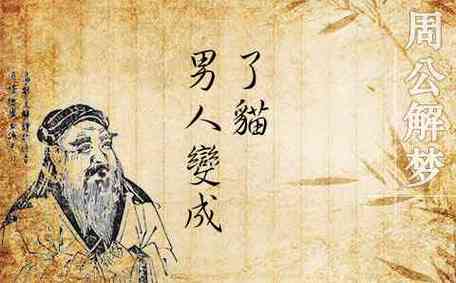 周公解梦
了貓
男人變成